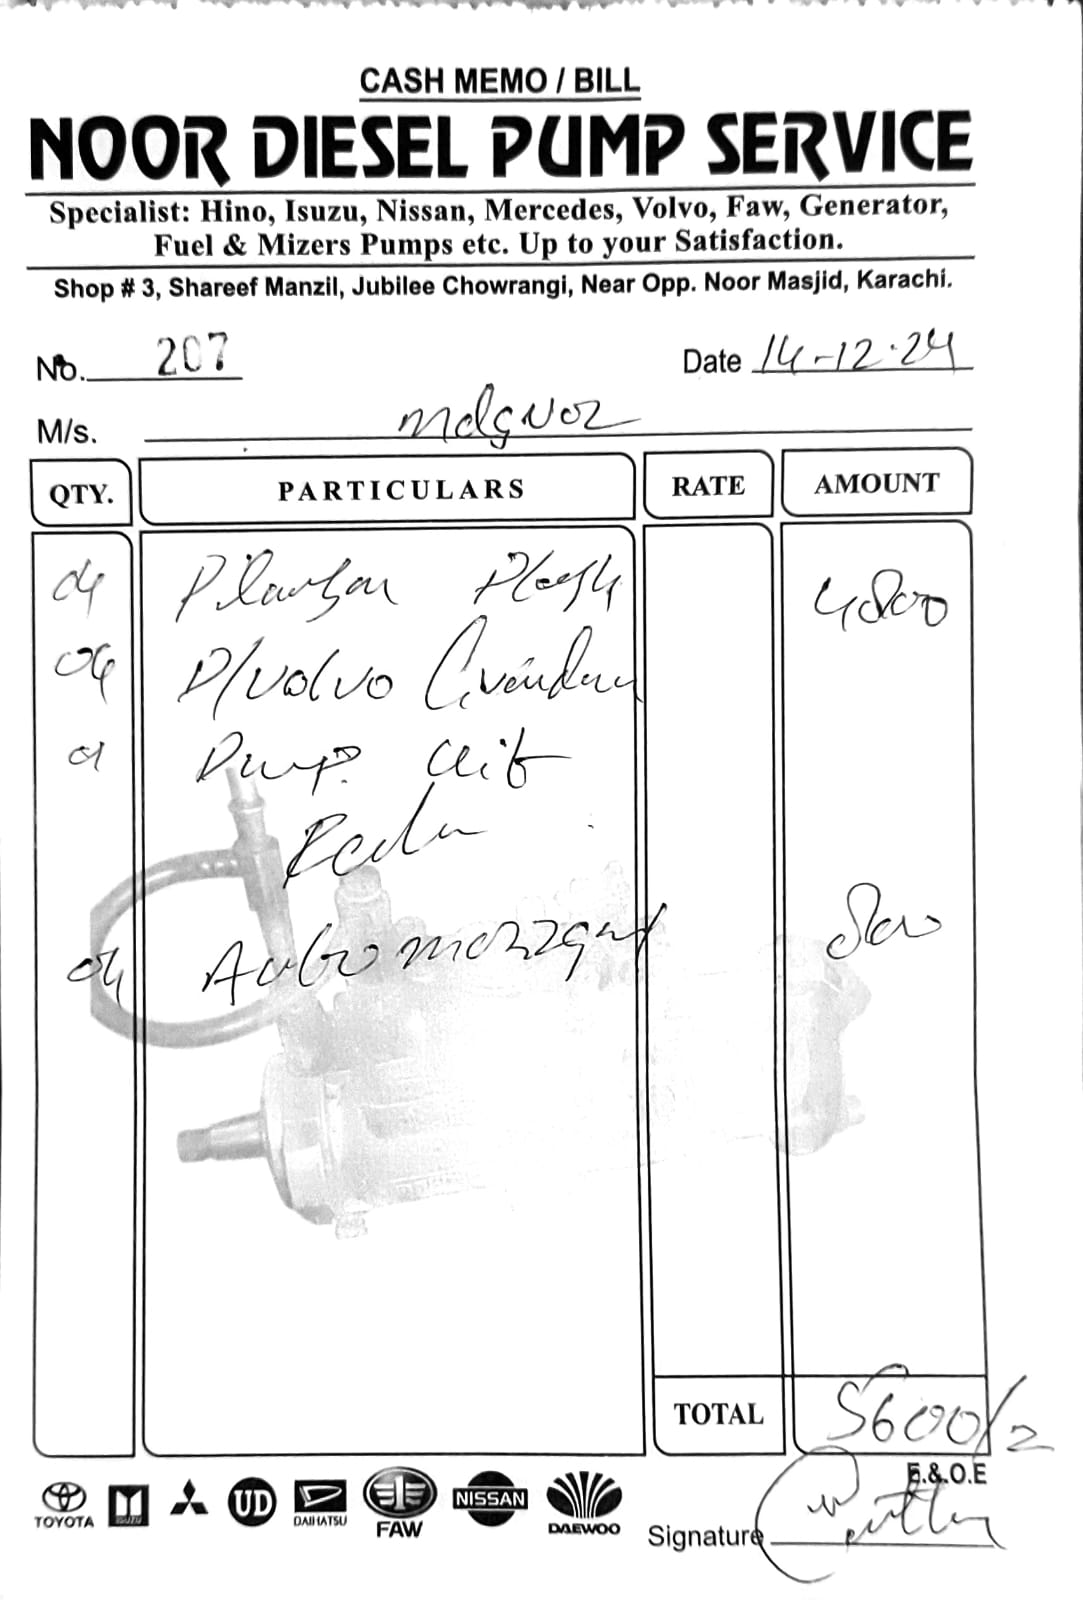 CASH MEMO / BILL
NOOR DIESEL PUMP SERVICE
Specialist: Hino, Isuzu, Nissan, Mercedes, Volvo, Faw, Generator,
Fuel & Mizers Pumps etc. Up to your Satisfaction.
Shop # 3, Shareef Manzil, Jubilee Chowrangi, Near Opp. Noor Masjid, Karachi.
No. 207 Date 14-12-24
M/s.
QTY. PARTICULARS RATE AMOUNT
04 4800
04 D/volvo
01 Pump
04 800
TOTAL 5600/=
E.&.O.E
TOYOTA ISUZU UD DAIHATSU FAW NISSAN DAEWOO
Signature